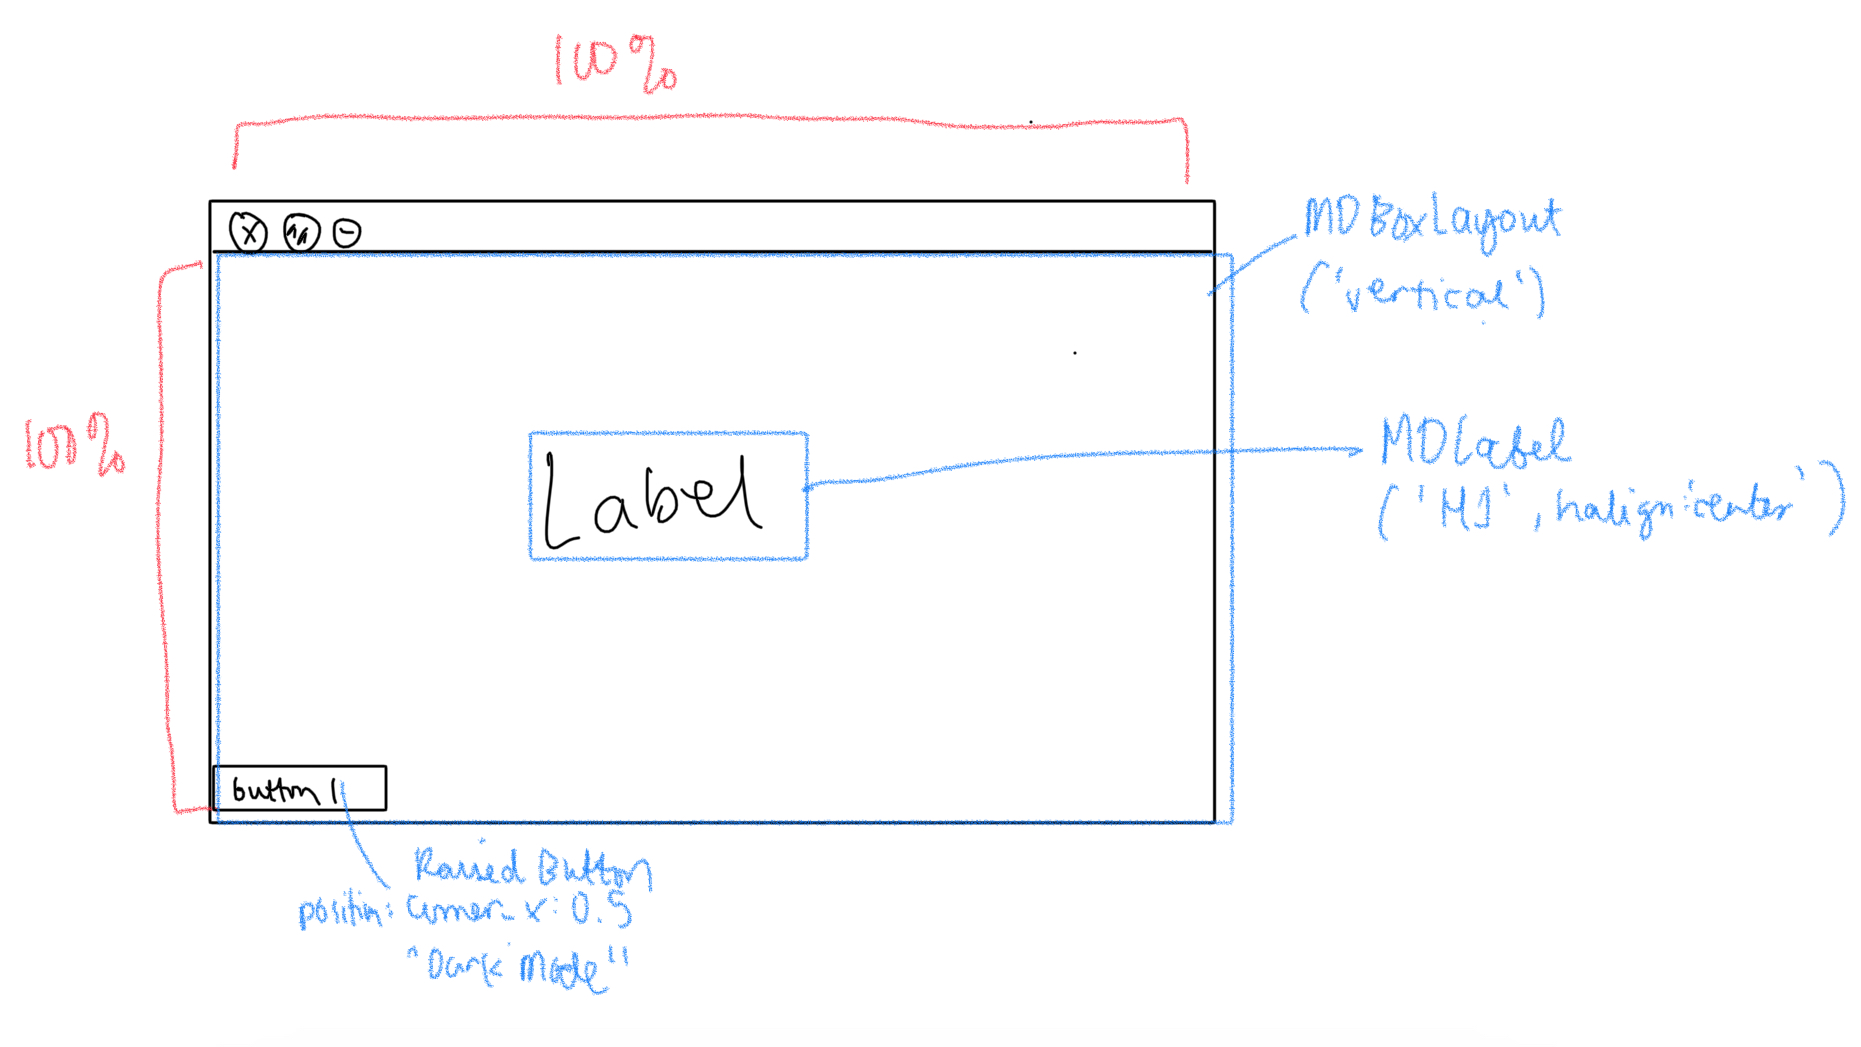 100%
MDBoxLayout
('vertical')
100%
Label
MDLabel
('H1', halign:'center')
button 1
Raised Button
position: corner_x: 0.5
"Dark Mode"